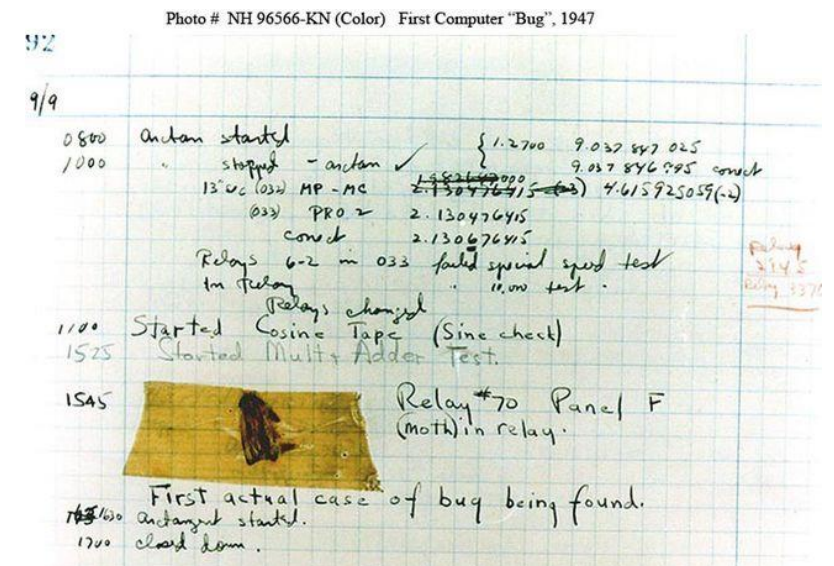 Photo # NH 96566-KN (Color) First Computer “Bug”, 1947
92
9/9
0800 antan started { 1.2700 9.037 847 025
1000 " stopped - antan ✓ 9.037 846 995 conect
13"uc (032) MP - MC 4.615925059(-2)
(033) PRO 2 2.130476415
conect 2.130676415
Relays 6-2 in 033 failed special speed test
In Relay " 10,000 test .
Relays changed
Relay
Relay 3370
1100 Started Cosine Tape (Sine check)
1525 Started Mult + Adder Test.
1545 Relay #70 Panel F
(moth) in relay.
First actual case of bug being found.
1630 antangent started.
1700 closed down.